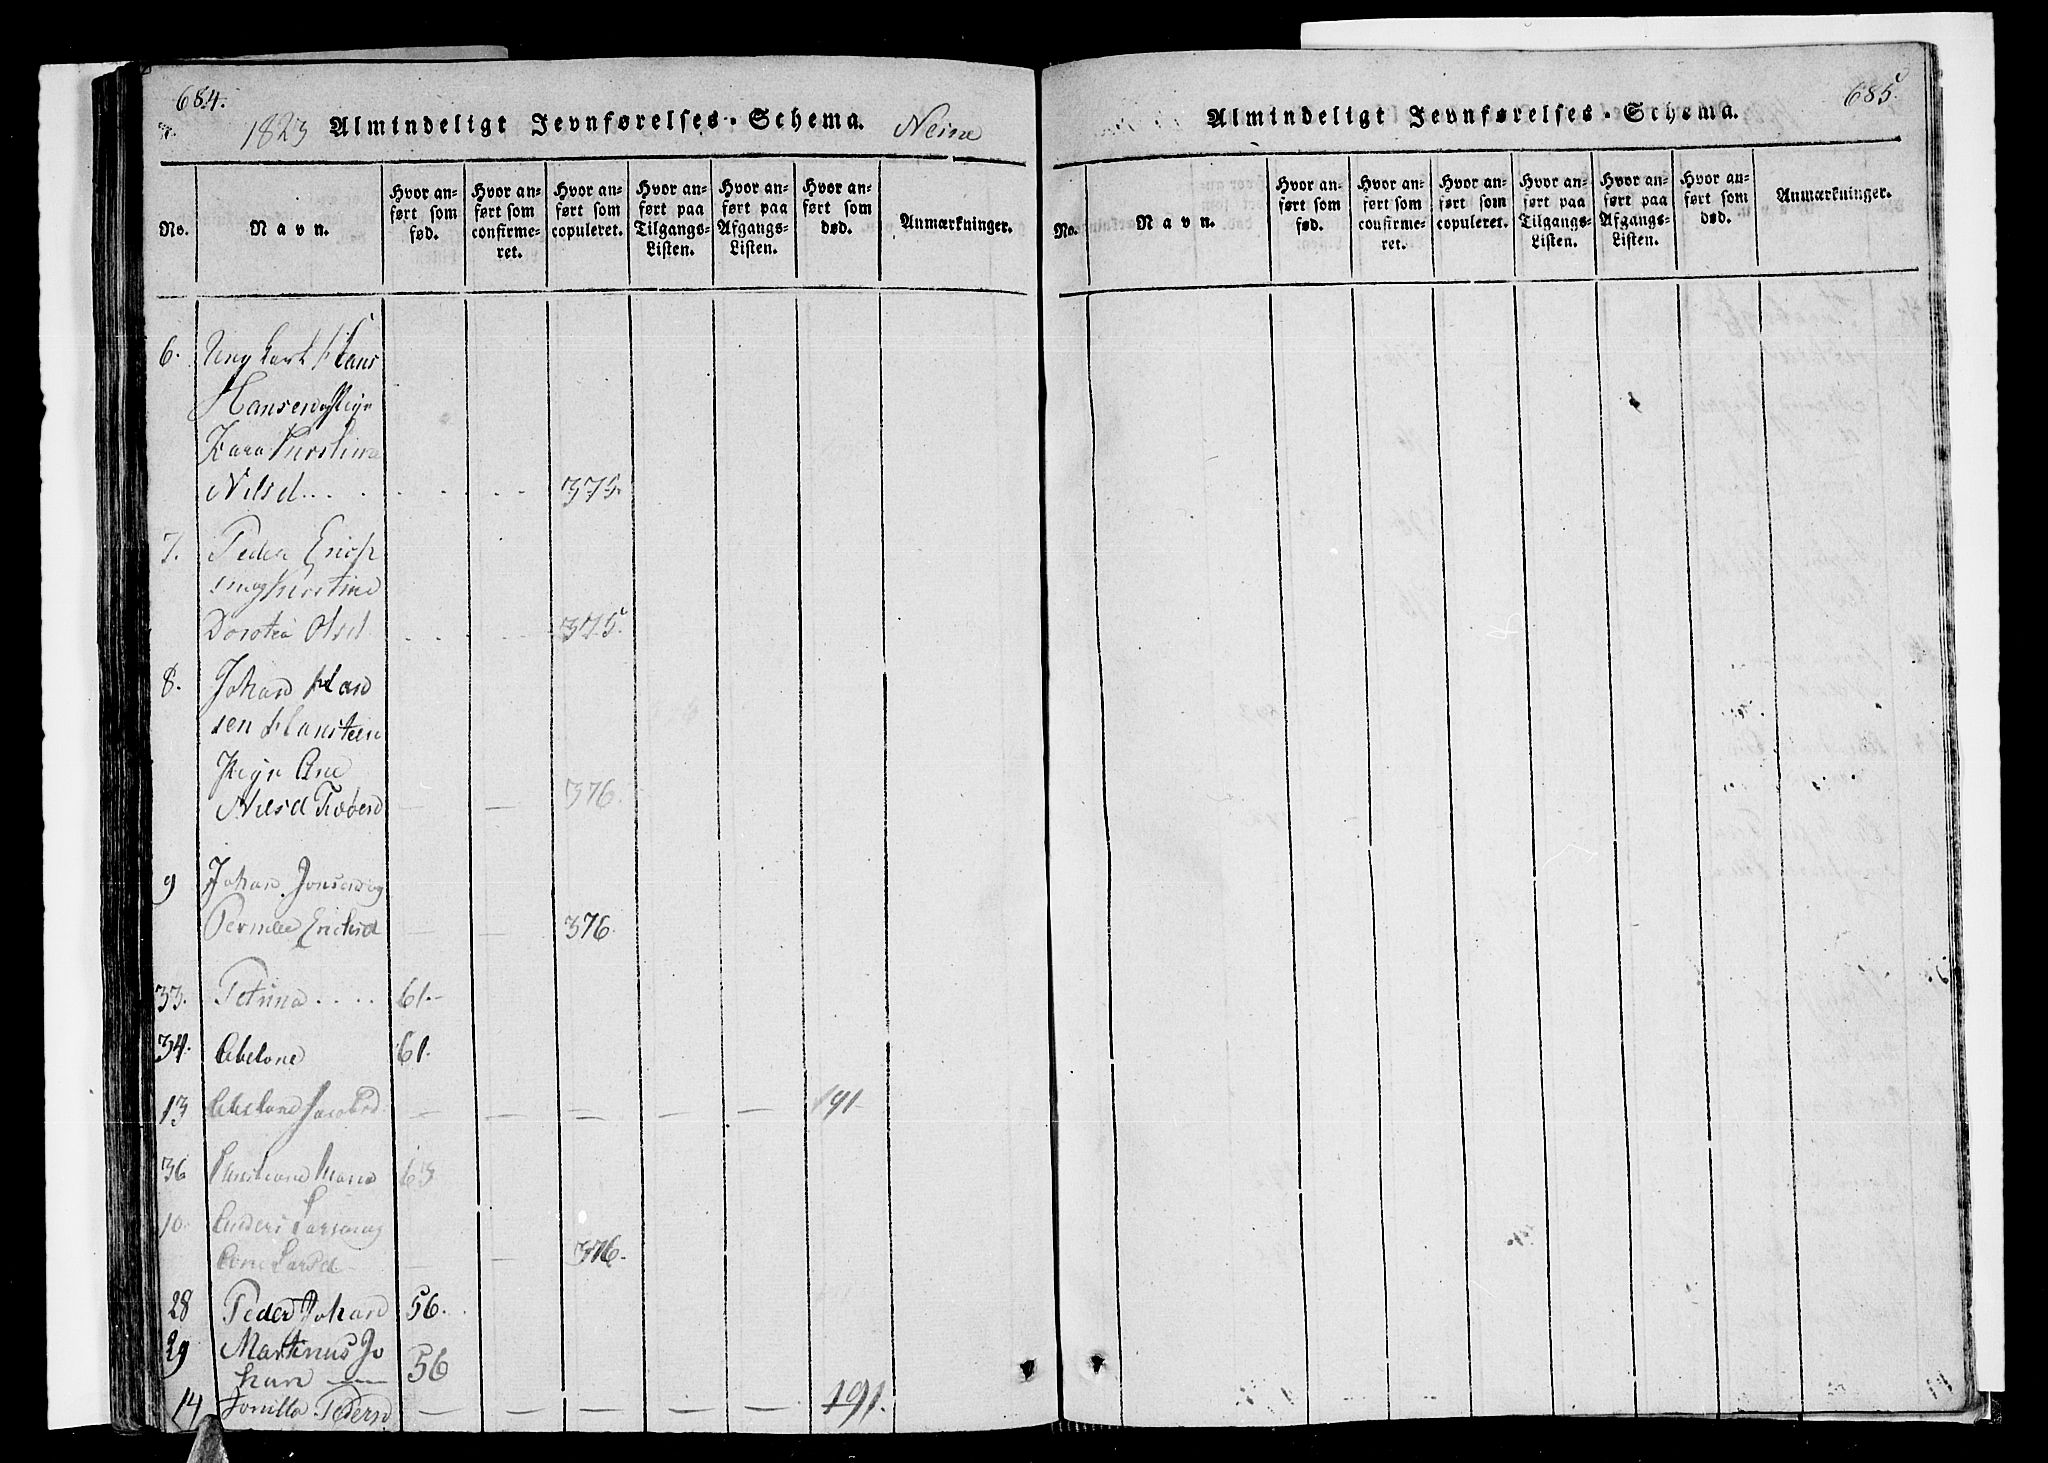 684.
1823 Almindeligt Jevnførelses-Schema. Nesne
No.
Navn.
Hvor anført som fød.
Hvor anført som confirmeret.
Hvor anført som copuleret.
Hvor anført paa Tilgangs-Listen.
Hvor anført paa Afgangs-Listen.
Hvor anført som død.
Anmærkninger.
6. Ung karl Hans
Hansen og Pige
Kirstina
Nilsd. . . . . . . 375.
7. Peder Erich
sen og Kirstine
Dorotea Olsd. . . . 375.
8. Johan Han
sen Hansteen
Pige Ane
Nilsd — — 376.
9 Johan Jonsen og
Pernille Erichsd — — 376.
33. Petrina . . . . 61.
34. Abelone 61.
13 Abelone Jacobsd. — — — — — 191
36 Maria 63
10. Anders Larsen og
Ane Larsd — — 376.
28 Peder Johan 56.
29 Martinus Jo
han — 56
14 Jonilla Pedersd — — — — — 191.
685.
Almindeligt Jevnførelses-Schema.
No.
Navn.
Hvor anført som fød.
Hvor anført som confirmeret.
Hvor anført som copuleret.
Hvor anført paa Tilgangs-Listen.
Hvor anført paa Afgangs-Listen.
Hvor anført som død.
Anmærkninger.